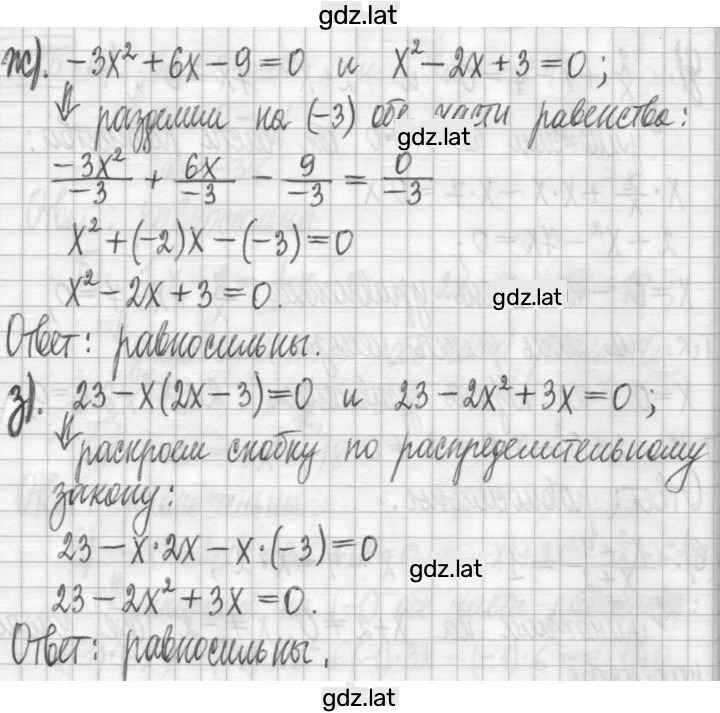 gdz.lat
ж). -3x² + 6x - 9 = 0 и x² - 2x + 3 = 0 ;
⇓ разделим на (-3) обе части равенства:
gdz.lat
-3x²/-3 + 6x/-3 - 9/-3 = 0/-3
x² + (-2)x - (-3) = 0
x² - 2x + 3 = 0.
gdz.lat
Ответ: равносильны.
з). 23 - x(2x - 3) = 0 и 23 - 2x² + 3x = 0 ;
⇓ раскроем скобку по распределительному
закону:
23 - x·2x - x·(-3) = 0
gdz.lat
23 - 2x² + 3x = 0.
Ответ: равносильны.
gdz.lat